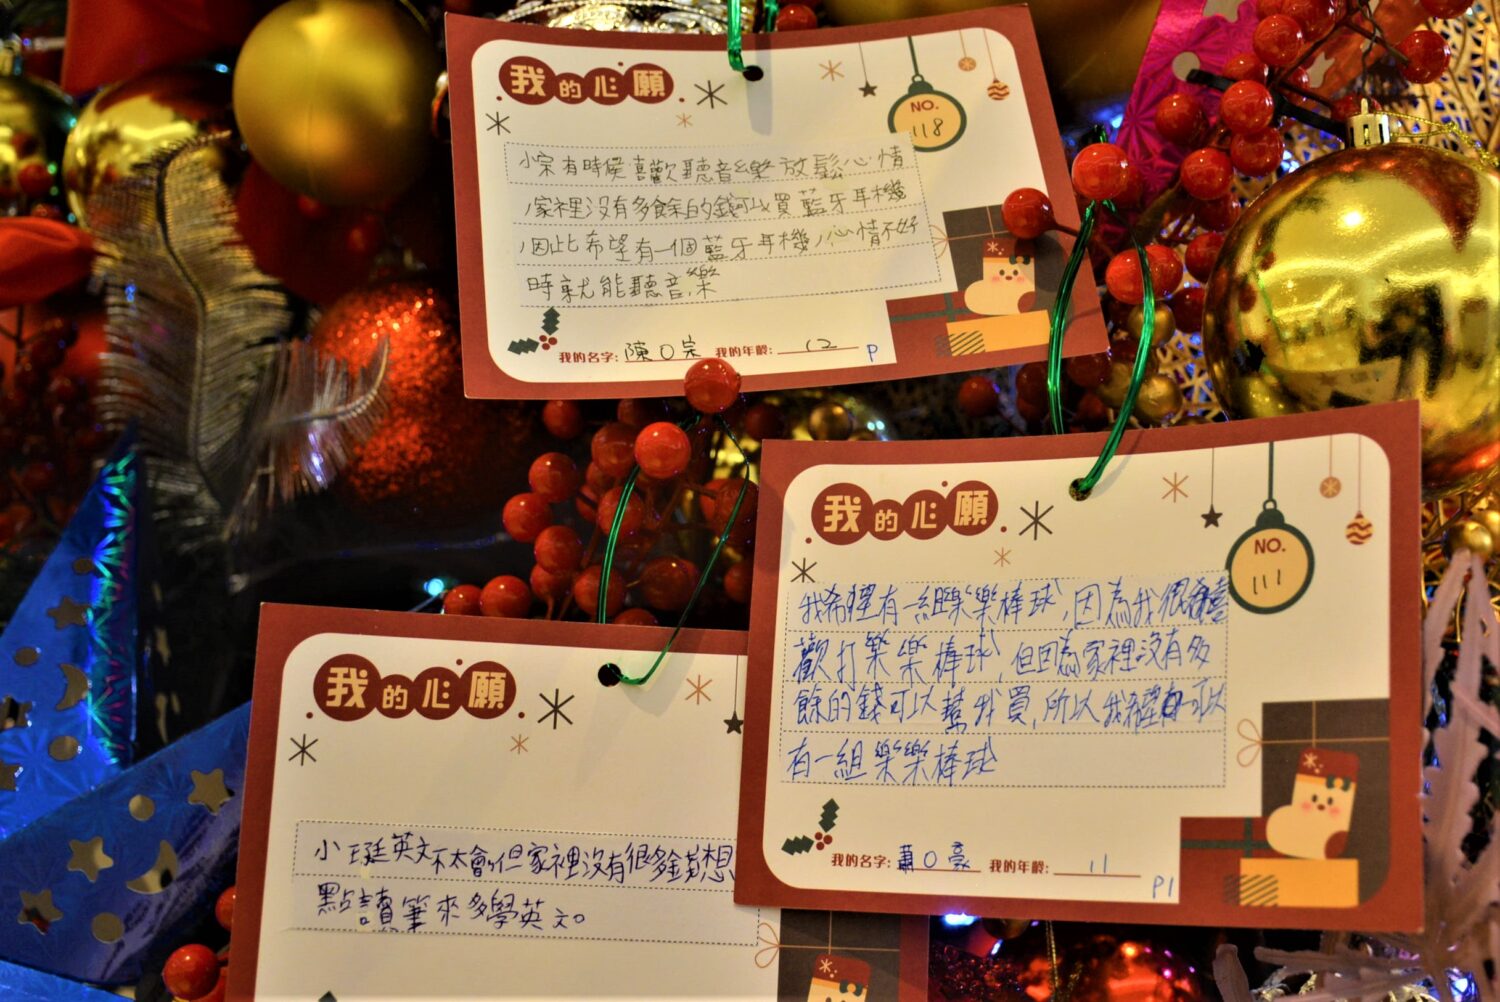 我的心願
NO.
118
小宗有時侯喜歡聽音樂放鬆心情
，家裡沒有多餘的錢可以買藍牙耳機
，因此希望有一個藍牙耳機，心情不好
時就能聽音樂
我的名字: 陳O宗 我的年齡: 12 P
我的心願
NO.
111
我希望有一組樂樂棒球，因為我很喜
歡打樂樂棒球，但因為家裡沒有多
餘的錢可以幫我買，所以我希望可以
有一組樂樂棒球
我的名字: 蕭O豪 我的年齡: 11
P1
我的心願
小珽英文不太會，但家裡沒有很多錢，想
點讀筆來多學英文。